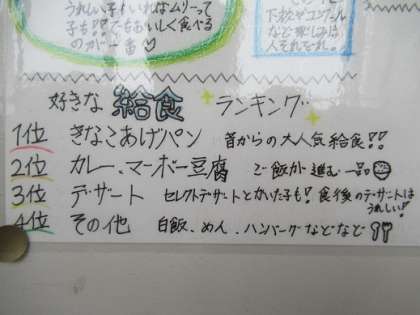 うれしい子もいればムリーって
子も!!でもおいしく食べる
のが一番♡
下校や
など楽しみは
人それぞれ。
好きな 給食 ランキング
1位 きなこあげパン 昔からの大人気給食!!
2位 カレー、マーボー豆腐 ご飯が進む一品
3位 デザート セレクトデザートとかいた子も! 食後のデザートは
うれしい!
4位 その他 白飯、めん、ハンバーグなどなど